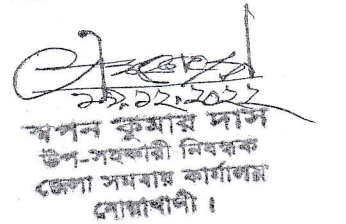 ২১.১২.২০২২
স্বপন কুমার দাস
উপ-সহকারী নিবন্ধক
জেলা সমবায় কার্যালয়
নোয়াখালী ।